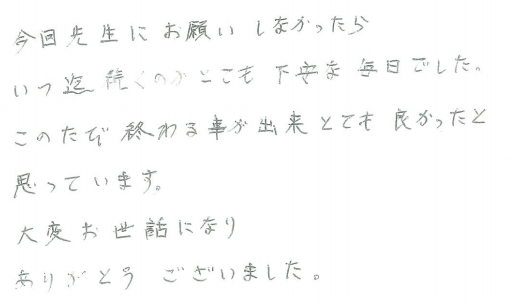 今回先生にお願いしなかったら
いつ迄続くのかとても不安な毎日でした。
このたび終わる事が出来とても良かったと
思っています。
大変お世話になり
ありがとうございました。